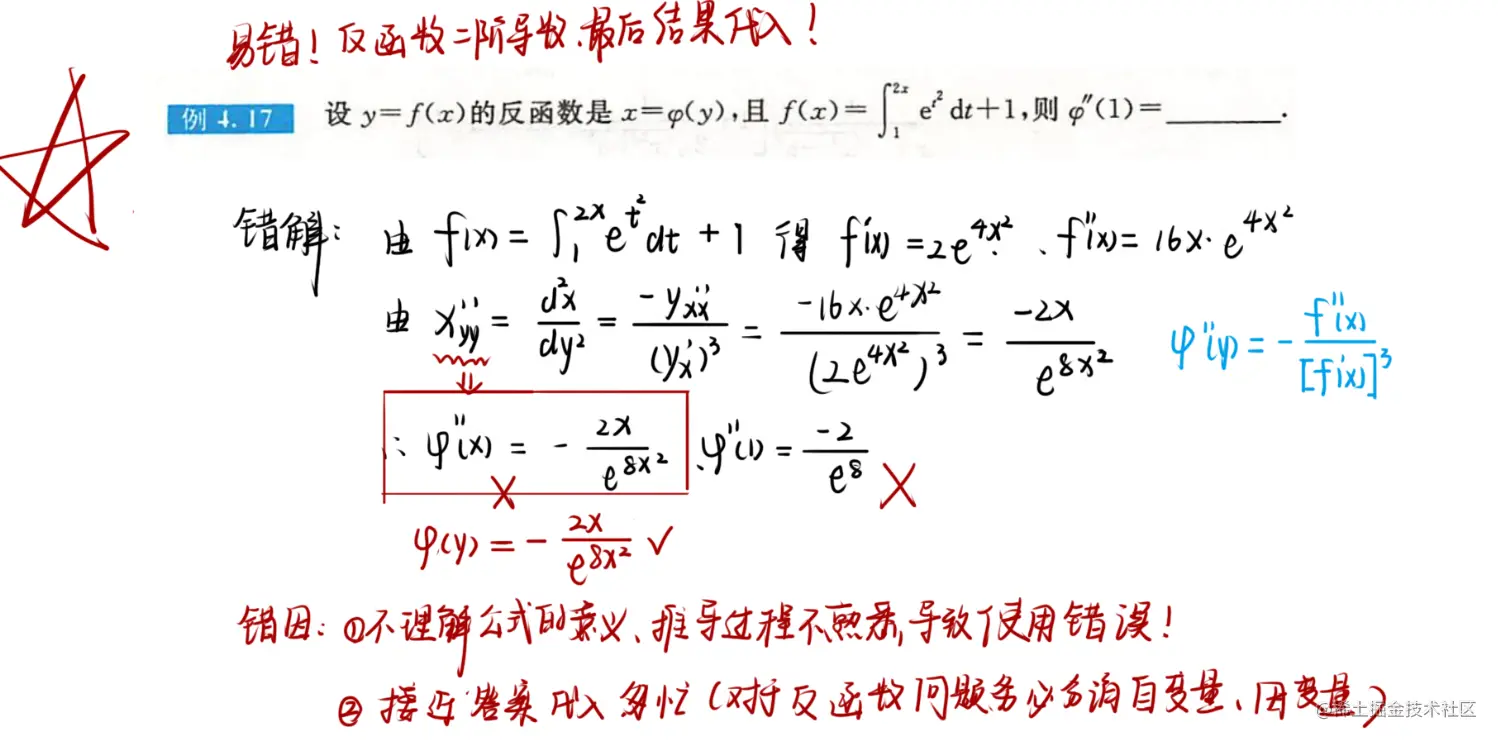 易错！反函数二阶导数、最后结果代入！
例 4.17 设 y=f(x)的反函数是 x=φ(y),且 f(x)=∫₁²ˣ e^{t²} dt+1,则 φ″(1)=________.
错解： 由 f(x) = ∫₁²ˣ e^{t²} dt + 1 得 f'(x) = 2e^{4x²} 、f''(x) = 16x·e^{4x²}
由 x''yy = d²x/dy² = -y''xx/(y'x)³ = -16x·e^{4x²}/(2e^{4x²})³ = -2x/e^{8x²} φ''(y) = - f''(x)/[f'(x)]³
∴ φ''(x) = - 2x/e^{8x²} 、φ''(1) = -2/e⁸ ×
×
φ(y) = - 2x/e^{8x²} ✓
错因：①不理解公式的意义、推导过程不熟悉,导致使用错误！
② 接近答案代入匆忙（对于反函数问题务必分清自变量、因变量）
@稀土掘金技术社区